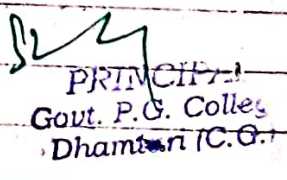 PRINCIPAL
Govt. P.G. Colleg
Dhamtari (C.G.)